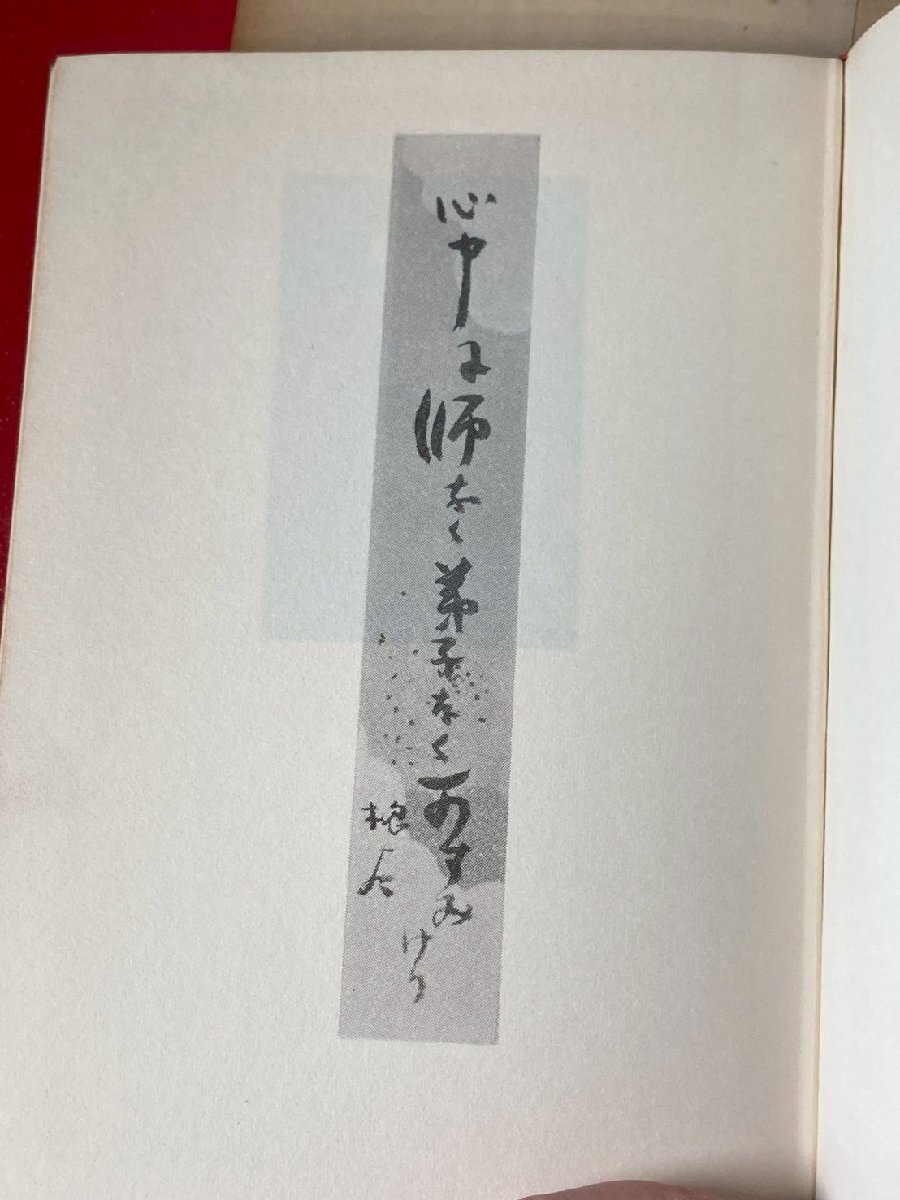 心中に師なく弟子なく可すみ
けり